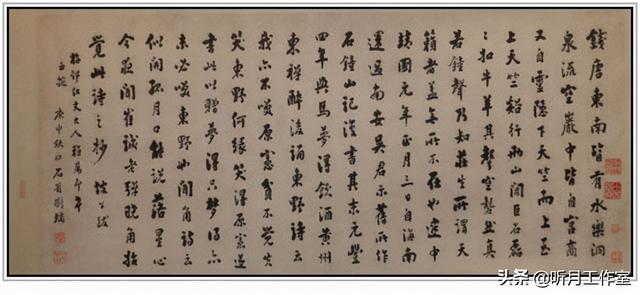 錢唐東南皆有水樂洞
泉流空巖中皆自宫商
又自靈隐下天竺而上至
上天竺谿行兩山間巨石磊
磊如牛羊其聲空礱然真
若鐘聲乃知莊生所謂天
籟者盖無所不在也建中
靖國元年正月三日自海南
還過南安吴君示舊所作
石鐘山記復書其末元豐
四年與馬夢得飲酒黄州
東禪醉後誦東野詩云
我亦不笑原憲貧不覺失
笑東野何緣笑得原憲遂
書此以贈夢得只夢得亦
未必笑東野也聞角詩云
似聞孤月口能說落星心
今夜聞崔誠老弹晓角始
覺此詩之妙
大人雅屬
庚申秋日石菴劉墉
头条@听月工作室